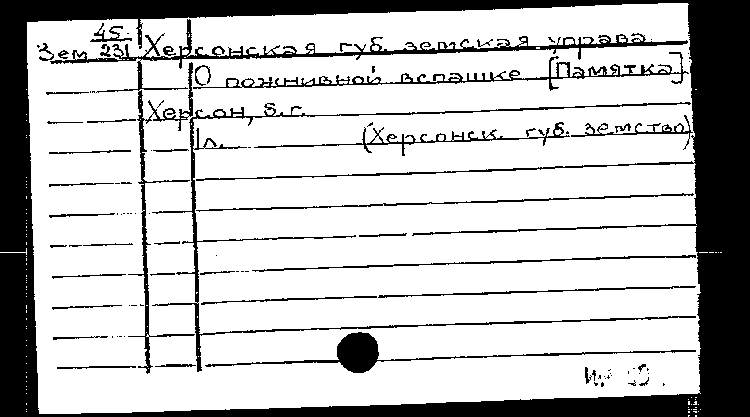 45
Зем 231 Херсонская губ. земская управа
О пожнивной вспашке [Памятка]
Херсон, б.г.
1 л. (Херсонск. губ. земство)